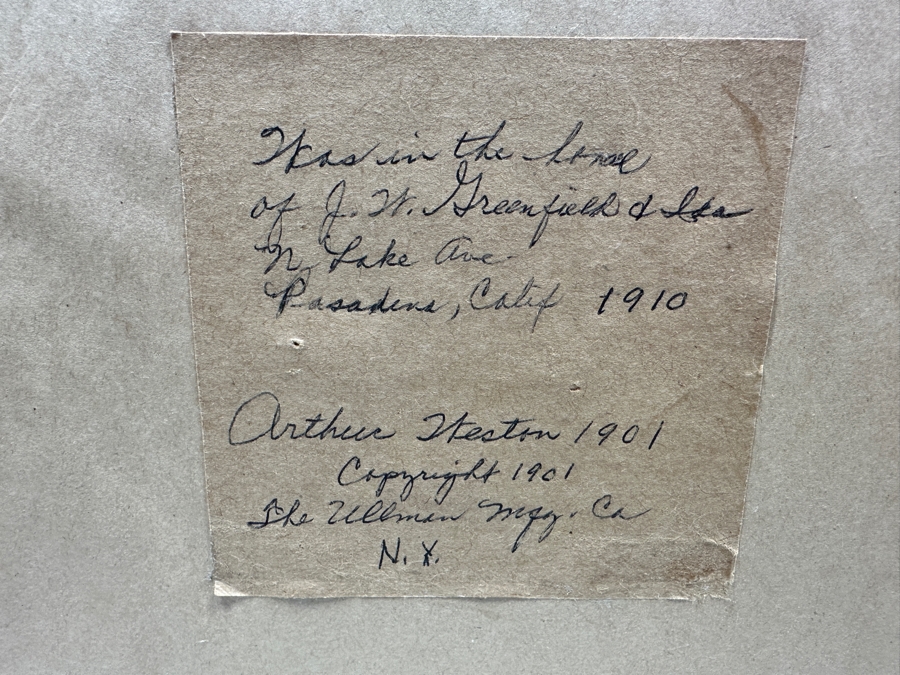 Was in the home
of J. W. Greenfield & Ida
N. Lake Ave.
Pasadena, Calif 1910
Arthur Weston 1901
Copyright 1901
The Ullman Mfg. Co
N. Y.